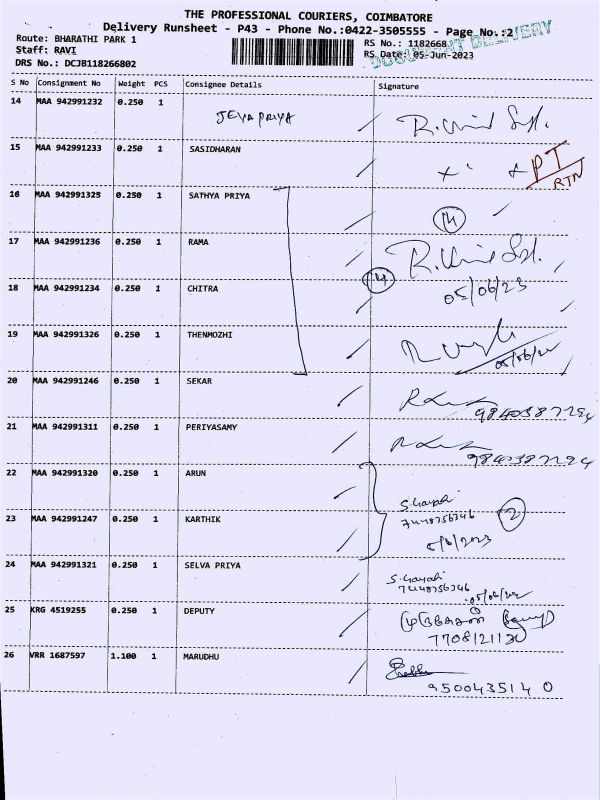 THE PROFESSIONAL COURIERS, COIMBATORE
Delivery Runsheet - P43 - Phone No.:0422-3505555 - Page No.:2
Route: BHARATHI PARK 1
Staff: RAVI
DRS No.: DCJB118266802
RS No.: 1182668
RS Date: 05-Jun-2023
DOCUMENT DELIVERY
S No Consignment No Weight PCS Consignee Details Signature
14 MAA 942991232 0.250 1 JEYAPRIYA
15 MAA 942991233 0.250 1 SASIDHARAN PT
RTN
16 MAA 942991325 0.250 1 SATHYA PRIYA 14
17 MAA 942991236 0.250 1 RAMA
18 MAA 942991234 0.250 1 CHITRA 14 05/06/23
19 MAA 942991326 0.250 1 THENMOZHI
20 MAA 942991246 0.250 1 SEKAR
21 MAA 942991311 0.250 1 PERIYASAMY
22 MAA 942991320 0.250 1 ARUN
23 MAA 942991247 0.250 1 KARTHIK 7448756346 2
5/6/2023
24 MAA 942991321 0.250 1 SELVA PRIYA
7448756346
25 KRG 4519255 0.250 1 DEPUTY
26 VRR 1687597 1.100 1 MARUDHU
9500435140